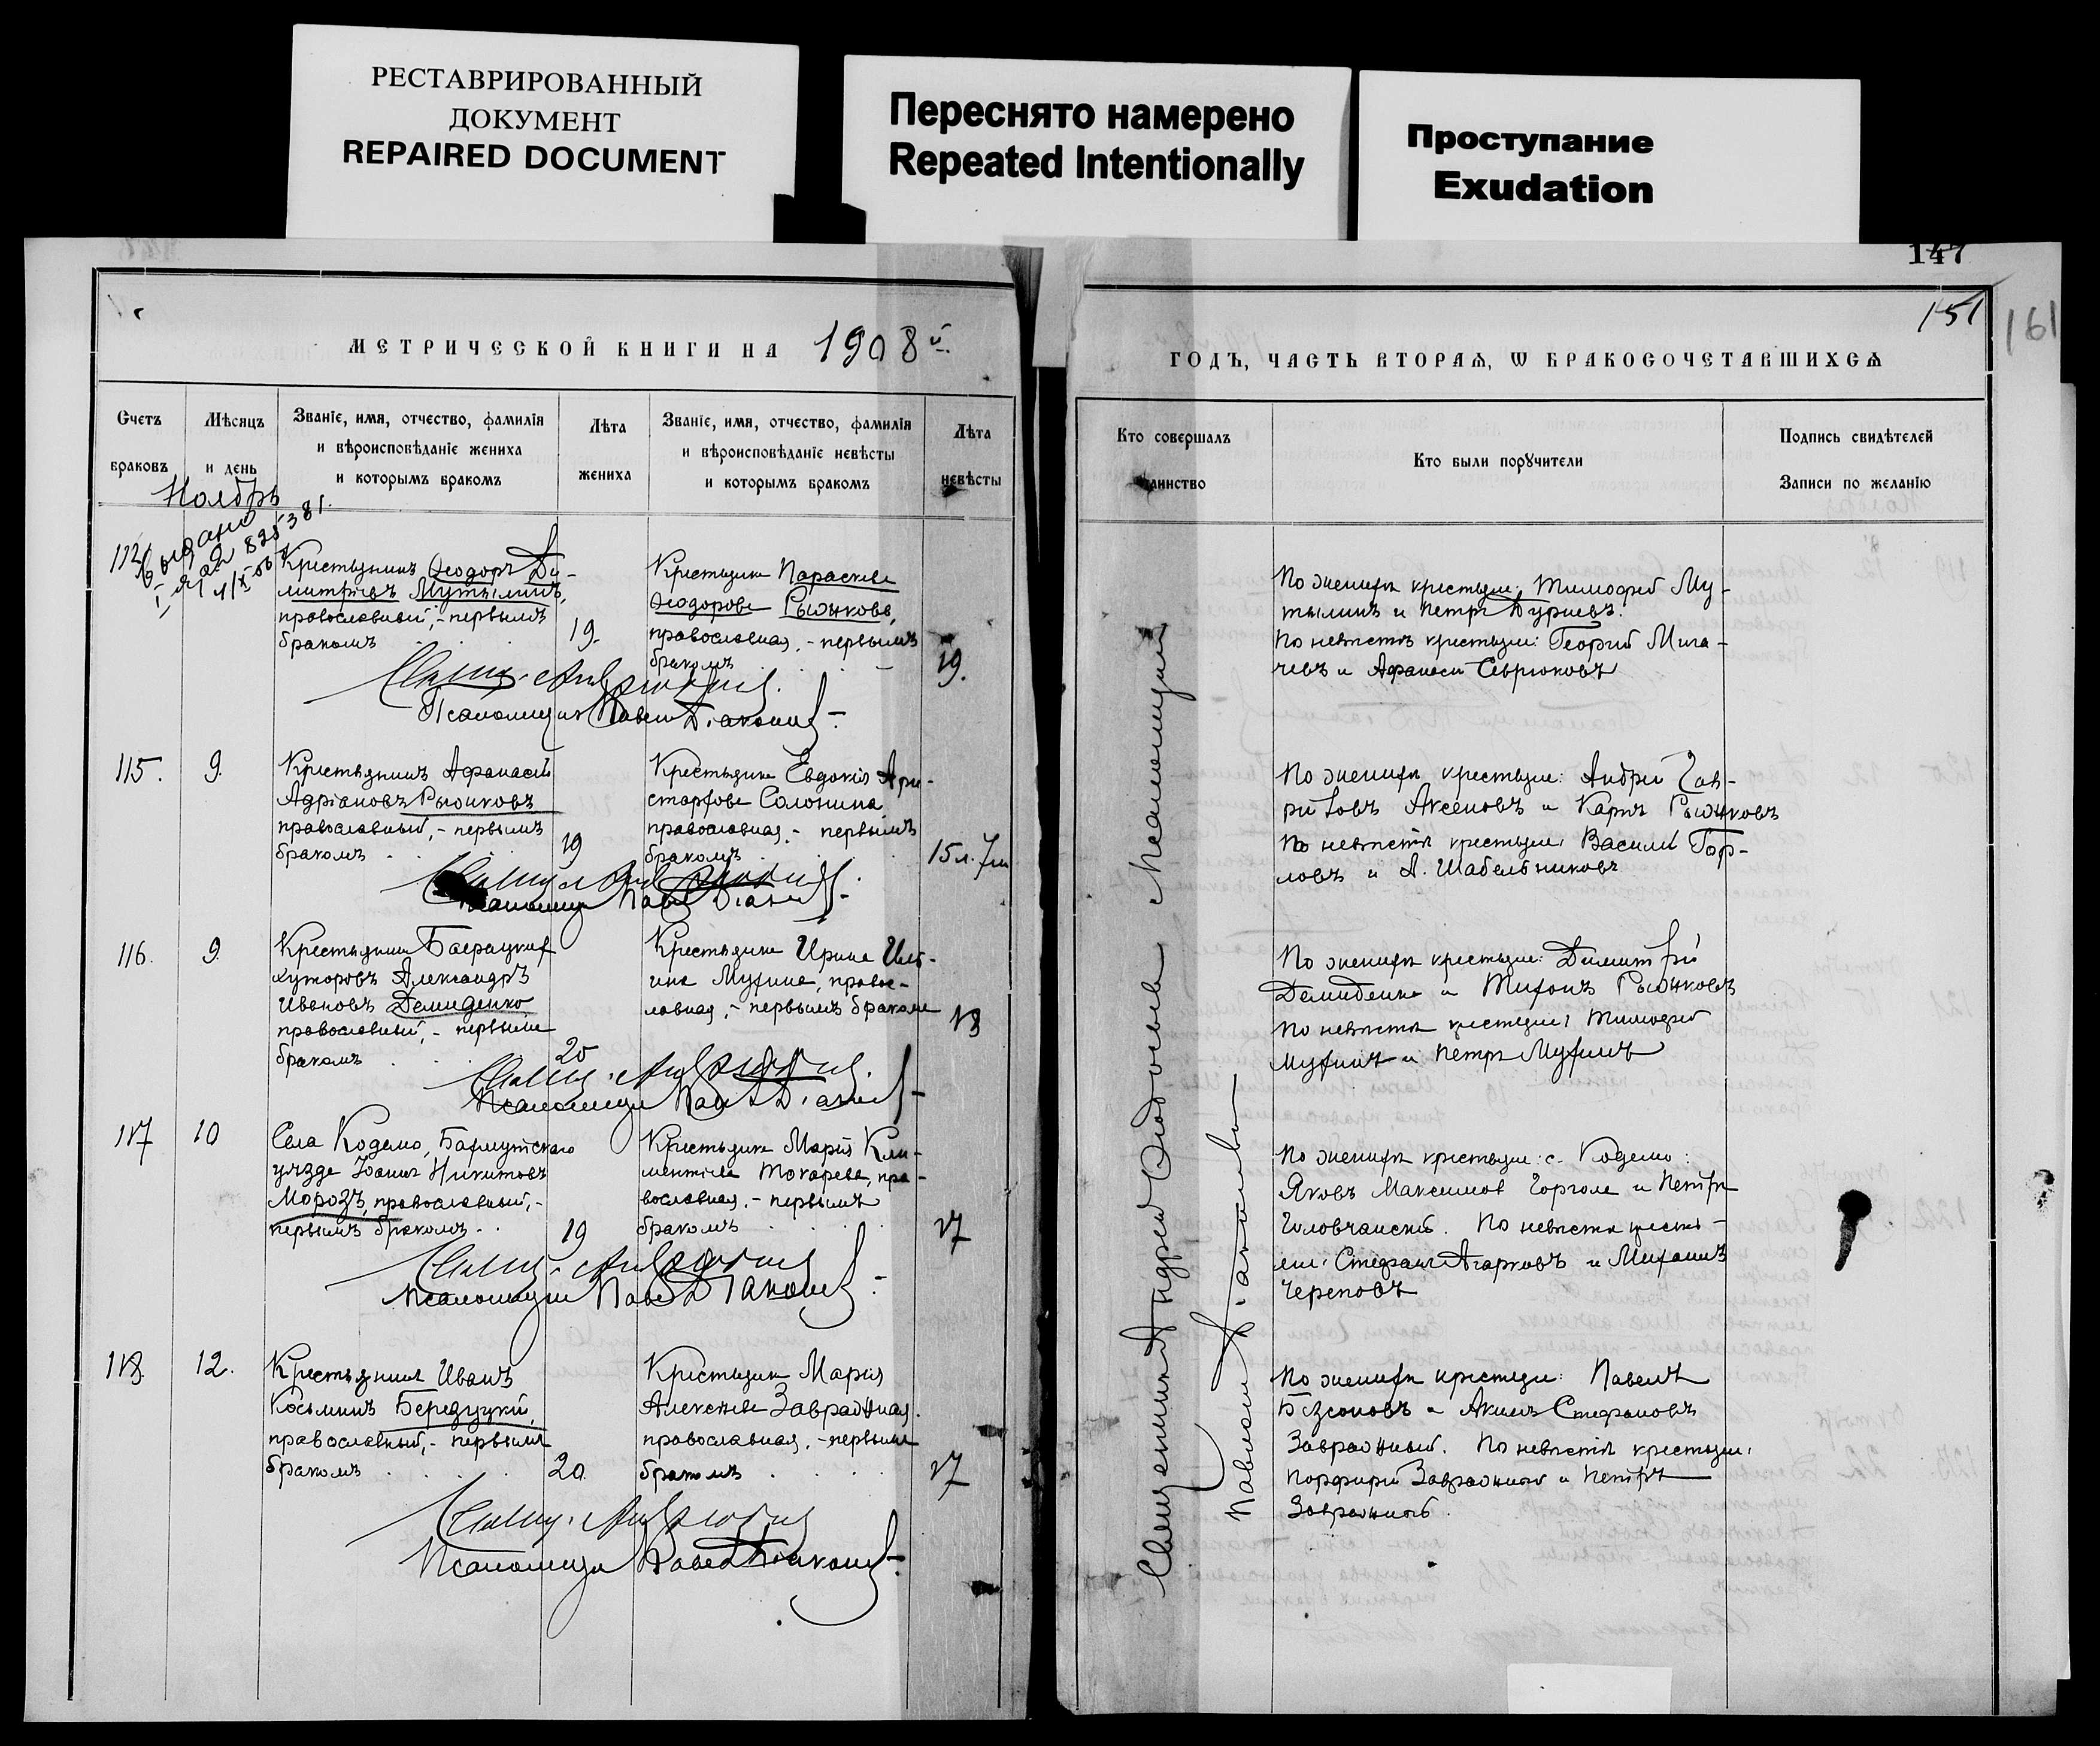 РЕСТАВРИРОВАННЫЙ
ДОКУМЕНТ
REPAIRED DOCUMENT
Переснято намерено
Repeated Intentionally
Проступание
Exudation
147
151
161
МЕТРИЧЕСКОЙ КНИГИ НА 1908 й.
Счетъ
браковъ
Мѣсяцъ
и день
Званіе, имя, отчество, фамилія
и вѣроисповѣданіе жениха
и которымъ бракомъ
Лѣта
жениха
Званіе, имя, отчество, фамилія
и вѣроисповѣданіе невѣсты
и которымъ бракомъ
Лѣта
невѣсты
Ноябрь
Выдано
Крестьянинъ Ѳеодоръ Ди-
митріевъ Мутылинъ,
православный, - первымъ
бракомъ
19.
Крестьянка Параскева
Ѳеодорова Рыжкова,
православная, - первымъ
бракомъ
19.
Псаломщик Павел Діаконов
115.
9.
Крестьянинъ Афанасій
Адріановъ Рыжковъ
православный, - первымъ
бракомъ
19
Крестьянка Евдокія Ари-
стархова Солонина
православная, - первымъ
бракомъ
15 л. 7 м
116.
9.
Крестьянин
хуторовъ Александръ
Ивановъ Демиденко
православный, - первымъ
бракомъ
20
Крестьянка Ирина Иль-
ина Мухина, правос-
лавная, - первымъ бракомъ
18
117
10
Села Кодемо, Бахмутскаго
уѣзда Іоаннъ Никитовъ
Морозъ, православный, -
первымъ бракомъ
19
Крестьянка Марія Кли-
ментіева Токарева, пра-
вославная, - первымъ
бракомъ
17
118.
12.
Крестьянинъ Иванъ
Косьминъ Бередуцкій,
православный, - первымъ
бракомъ
20.
Крестьянка Марія
Алексѣева Завражная.
православная, - первымъ
бракомъ
17
Псаломщик Павел Діаконов
ГОДЪ, ЧАСТЬ ВТОРАЯ, Ѡ БРАКОСОЧЕТАВШИХСѦ
Кто совершалъ
таинство
Кто были порꙋчители
Подпись свидѣтелей
Записи по желанію
Священникъ Андрей
Псаломщикъ
Павелъ Діаконовъ
По женихѣ крестьяне: Тимофей Му-
тылинъ и Петръ
По невѣстѣ крестьяне: Георгій Мига-
чевъ и Афанасій Севрюковъ
По женихѣ крестьяне: Андрей Гав-
риловъ Аксеновъ и Карпъ Рыжковъ
По невѣстѣ крестьяне: Василій Гор-
ловъ и А. Шабельниковъ
По женихѣ крестьяне: Димитрій
Демиденко и Тихонъ Рыжковъ
По невѣстѣ крестьяне: Тимофей
Мухинъ и Петръ Мухинъ
По женихѣ крестьяне: с. Кодемо:
Яковъ Максимов Горгола и Петръ
Головчанскій. По невѣстѣ крестья-
не: Стефанъ Агарковъ и Михаилъ
Череповъ
По женихѣ крестьяне: Павелъ
Безсоновъ и Акимъ Стефановъ
Завражный. По невѣстѣ крестьяне:
Порфирій Завражный и Петръ
Завражный.